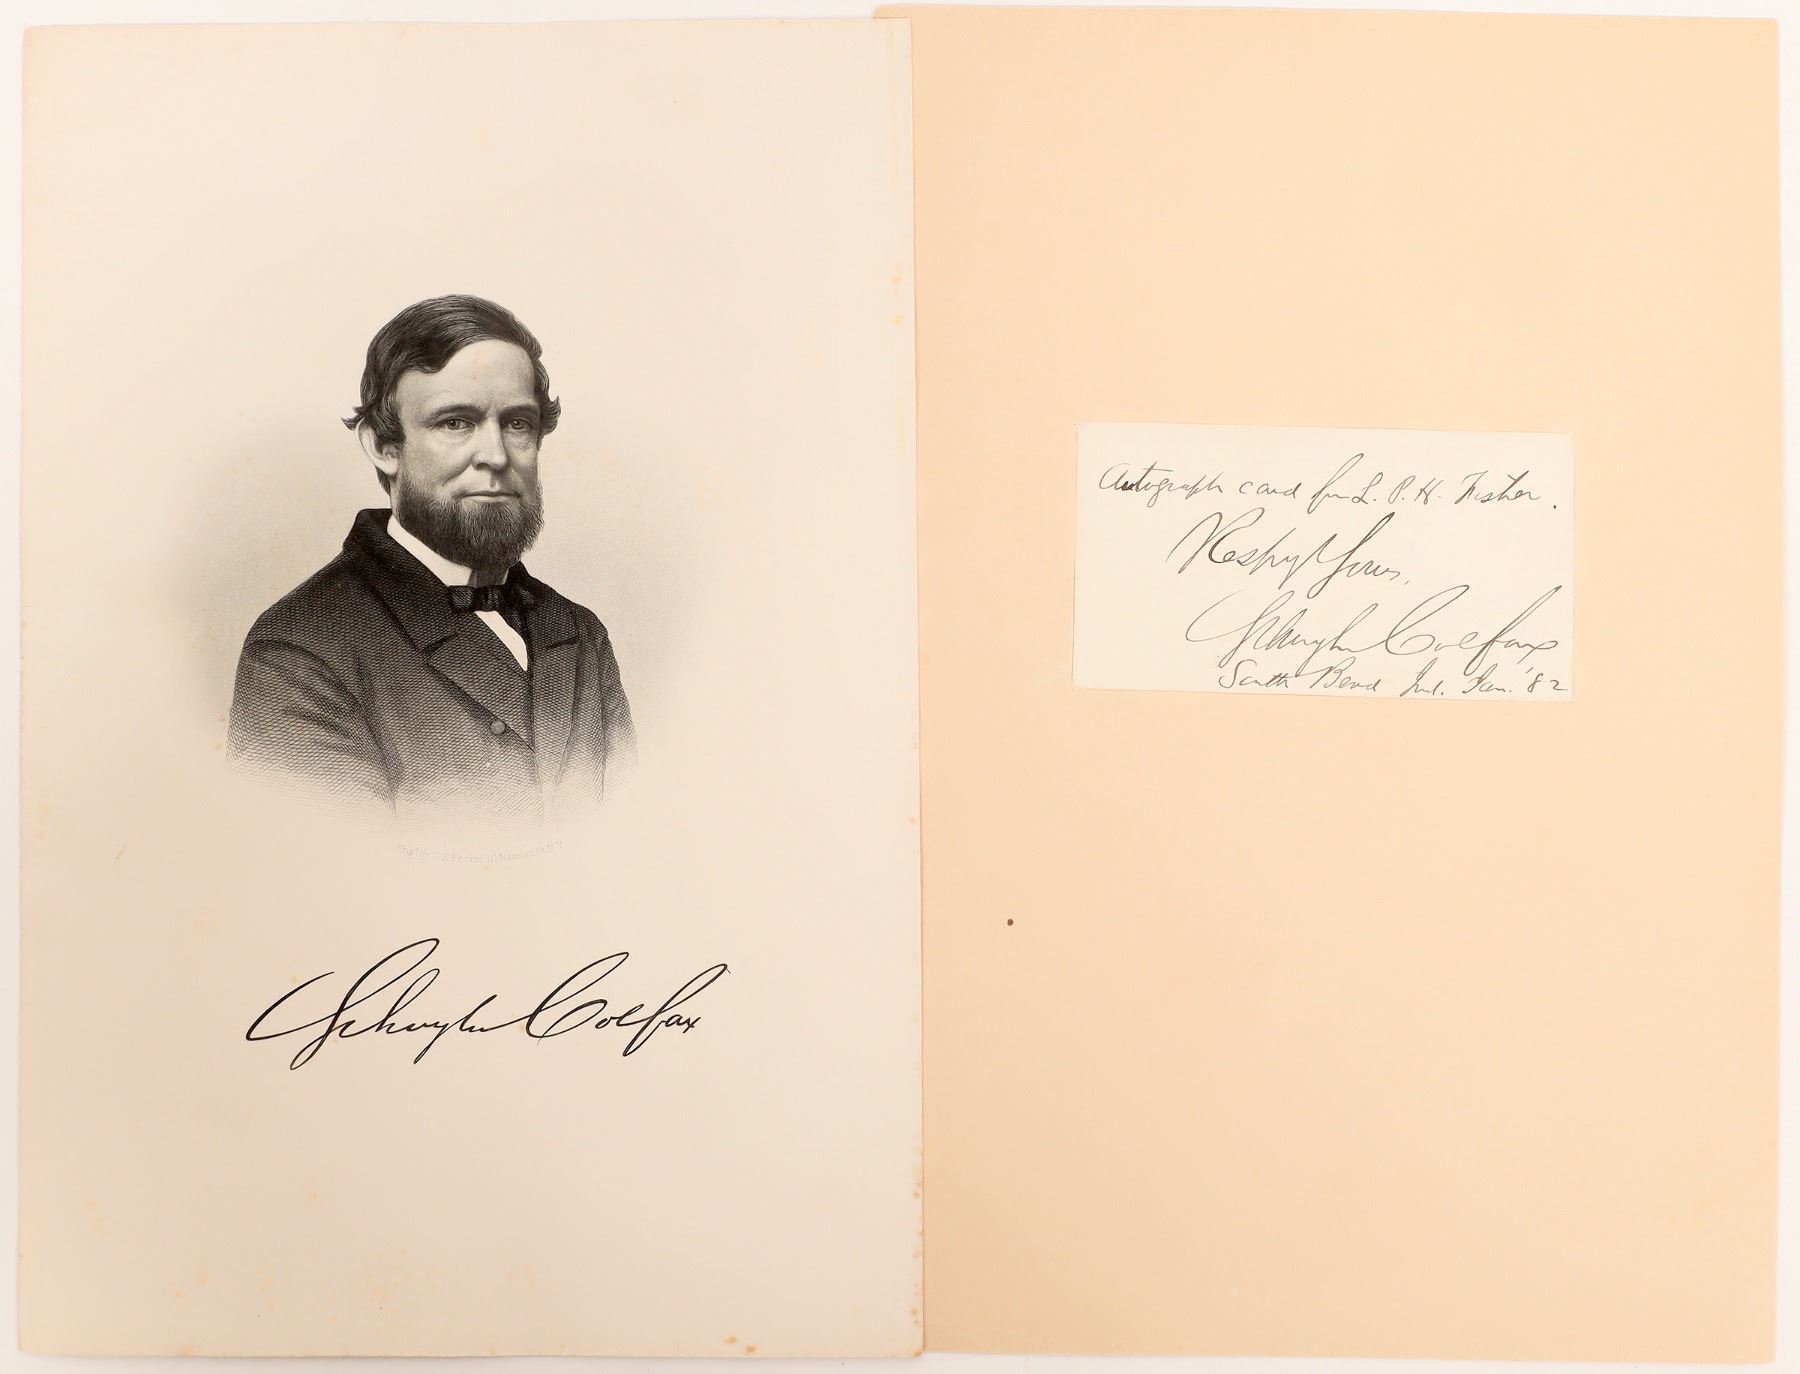 Eng'd by G.E. Perine 111 Nassau St. N.Y.
Schuyler Colfax
Autograph card for L. P. H. Fisher.
Respy Yours,
Schuyler Colfax
South Bend Ind. Jan. '82